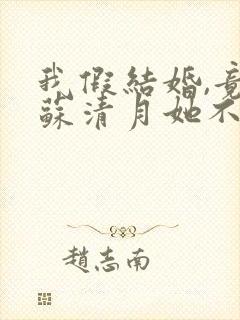 我假結婚,竟
蘇清月她不
趙志南